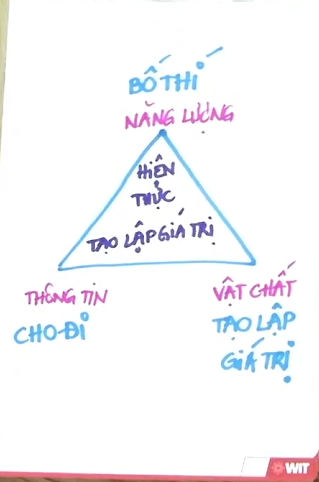 BỐ THÍ
NĂNG LƯỢNG
HIỆN
THỰC
TẠO LẬP GIÁ TRỊ
THÔNG TIN
CHO-ĐI
VẬT CHẤT
TẠO LẬP
GIÁ TRỊ
WIT